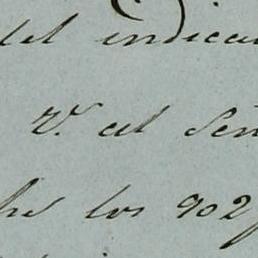 del indica
V. al Señ
los 902